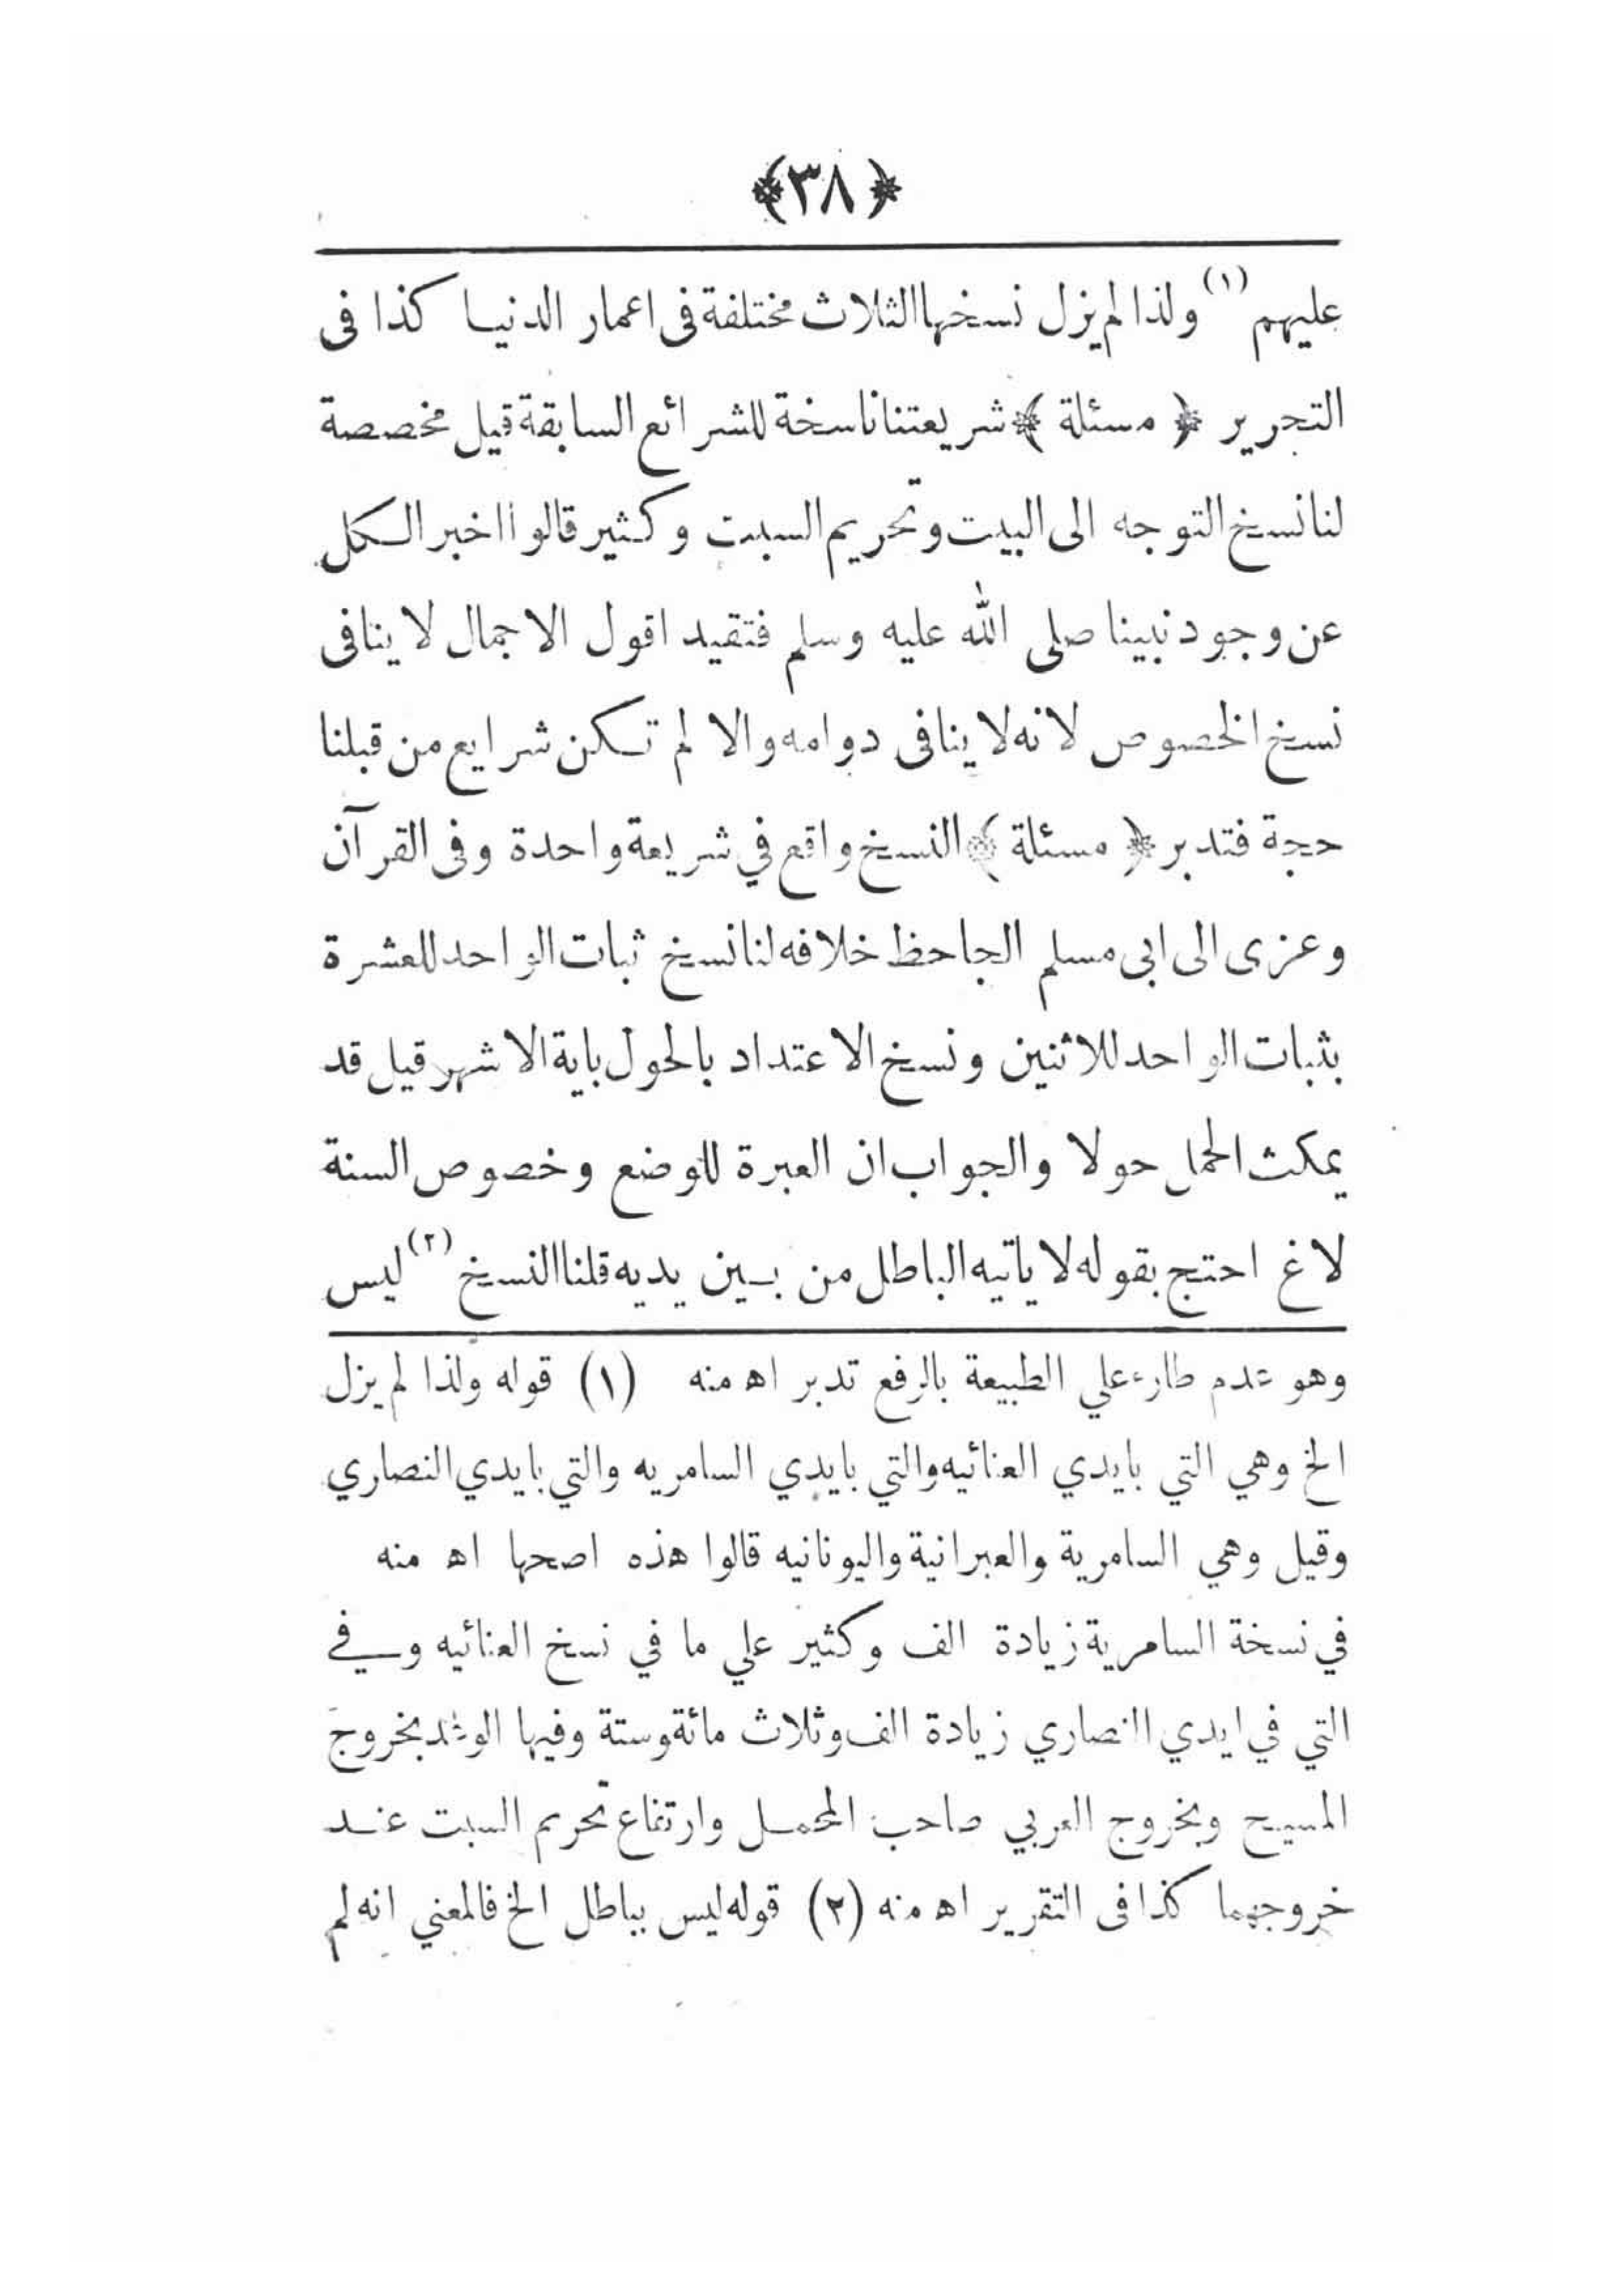 ﴿٣٨﴾
عليهم (١) ولذا لم يزل نسخها الثلاث مختلفة فى اعمار الدنيا كذا فى
التحرير ﴿ مسئلة ﴾ شريعتنا ناسخة للشرائع السابقة قيل مخصصة
لنا نسخ التوجه الى البيت وتحريم السبت وكثير قالوا اخبر الكل
عن وجود نبينا صلى الله عليه وسلم فتقيد اقول الاجمال لا ينافى
نسخ الخصوص لانه لا ينافى دوامه والا لم تكن شرايع من قبلنا
حجة فتدبر ﴿ مسئلة ﴾ النسخ واقع في شريعة واحدة وفى القرآن
وعزى الى ابى مسلم الجاحظ خلافه لنا نسخ ثبات الواحد للعشرة
بثبات الواحد للاثنين ونسخ الاعتداد بالحول باية الاشهر قيل قد
يمكث الحمل حولا والجواب ان العبرة للوضع وخصوص السنة
لاغ احتج بقوله لا ياتيه الباطل من بين يديه قلنا النسخ (٢) ليس
وهو عدم طارء علي الطبيعة بالرفع تدبر اه منه (١) قوله ولذا لم يزل
الخ وهي التي بايدي العنائيه والتي بايدي السامريه والتي بايدي النصاري
وقيل وهي السامرية والعبرانية واليونانيه قالوا هذه اصحها اه منه
في نسخة السامرية زيادة الف وكثير علي ما في نسخ العنائيه وفي
التي في ايدي النصاري زيادة الف وثلاث مائة وستة وفيها الوعد بخروج
المسيح وبخروج العربي صاحب المحمل وارتفاع تحريم السبت عند
خروجهما كذا فى التقرير اه منه (٢) قوله ليس بباطل الخ فالمعني انه لم